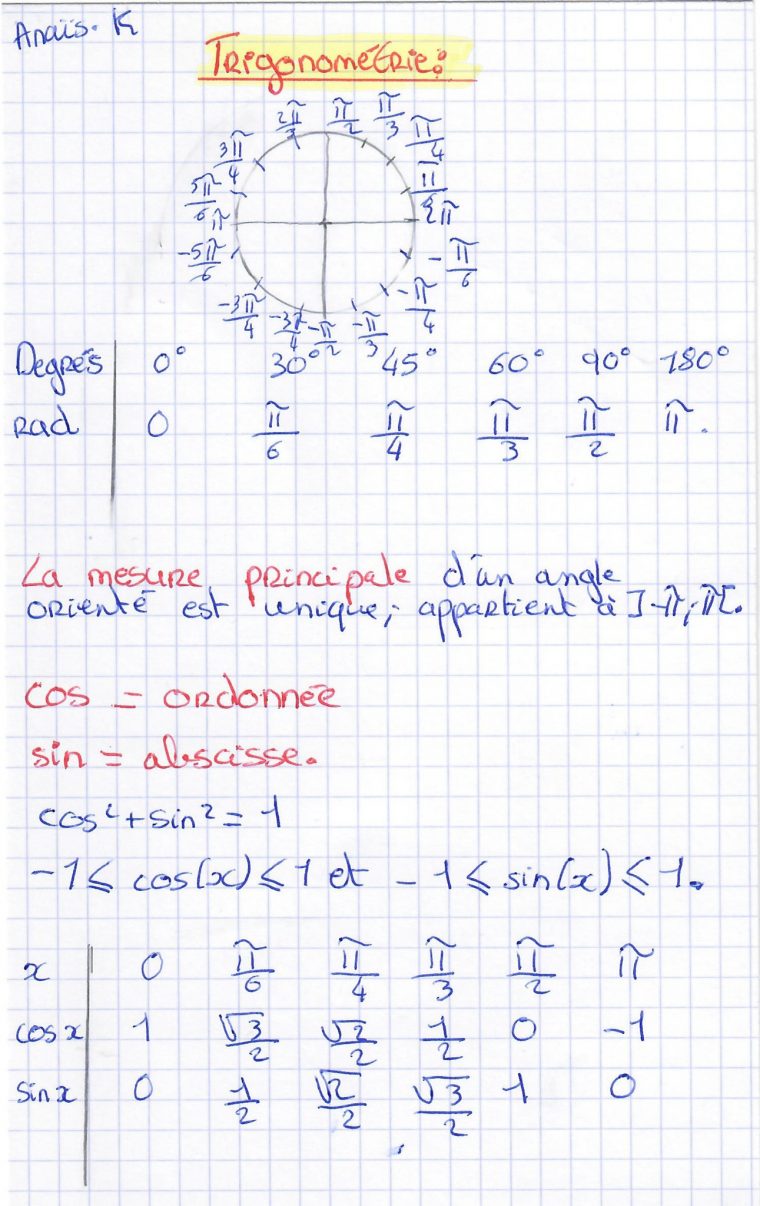 Anaïs. K
Trigonométrie:
2π/3 π/2 π/3
3π/4 π/4
5π/6 π/6
π 2π
-5π/6 -π/6
-3π/4 -3π/4 -π/2 -π/3 -π/4
Degrés 0° 30° 45° 60° 90° 180°
rad 0 π/6 π/4 π/3 π/2 π.
La mesure principale d'un angle
orienté est unique, appartient à ]-π, π[.
cos = ordonnée
sin = abscisse.
cos² + sin² = 1
-1 ⩽ cos(x) ⩽ 1 et -1 ⩽ sin(x) ⩽ 1.
x 0 π/6 π/4 π/3 π/2 π
cos x 1 √3/2 √2/2 1/2 0 -1
sin x 0 1/2 √2/2 √3/2 1 0